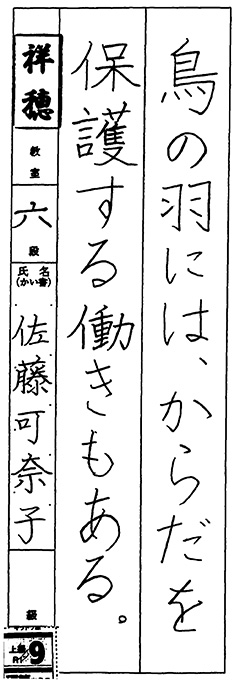 鳥の羽には、からだを
保護する働きもある。
祥穂
教室
六段
氏名
(かい書)
佐藤可奈子
級
9